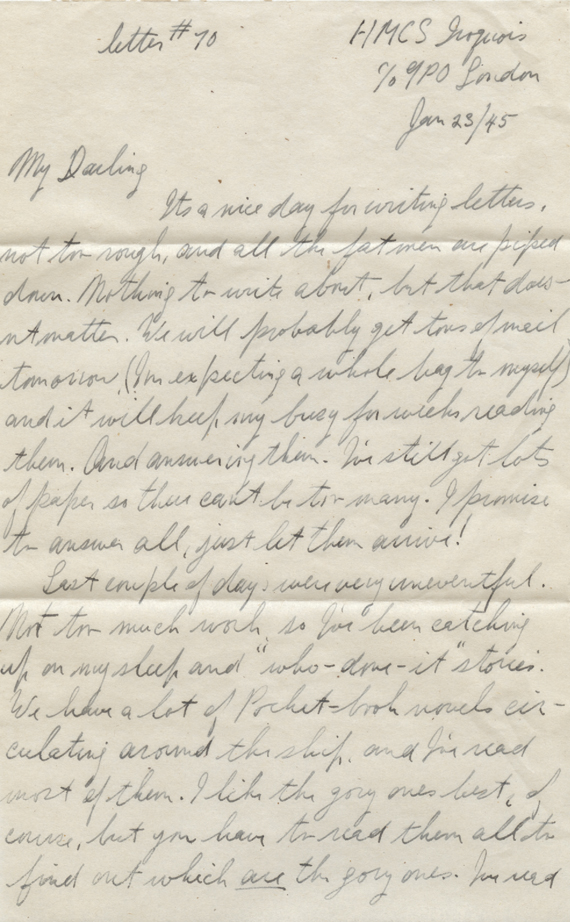 letter # 70
HMCS Iroquois
c/o GPO London
Jan 23/45
My Darling
Its a nice day for writing letters,
not too rough, and all the fat men are piped
down. Nothing to write about, but that does-
nt matter. We will probably get tons of mail
tomorrow, (Im expecting a whole bag to myself)
and it will keep my busy for weeks reading
them. And answering them. I've still got lots
of paper so there can't be too many. I promise
to answer all, just let them arrive!
Last couple of days were very uneventful.
Not too much work, so I've been catching
up on my sleep and "who-done-it" stories.
We have a lot of Pocket-book novels cir-
culating around the ship, and I've read
most of them. I like the gory ones best, of
course, but you have to read them all to
find out which are the gory ones. I've read